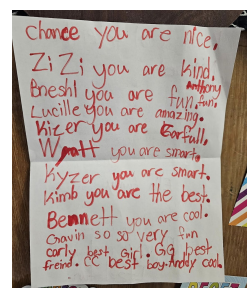 chance you are nice.
ZiZi you are kind.
Bneshl you are fun. Anthony fun.
Lucille you are amazing.
Kizer you are Earfull.
Wyatt you are smart.
Kyzer you are smart.
Kimb you are the best.
Bennett you are cool.
Gavin so so very fun
carly best Girl. GG best
freind. CC best boy. Anddy cool.